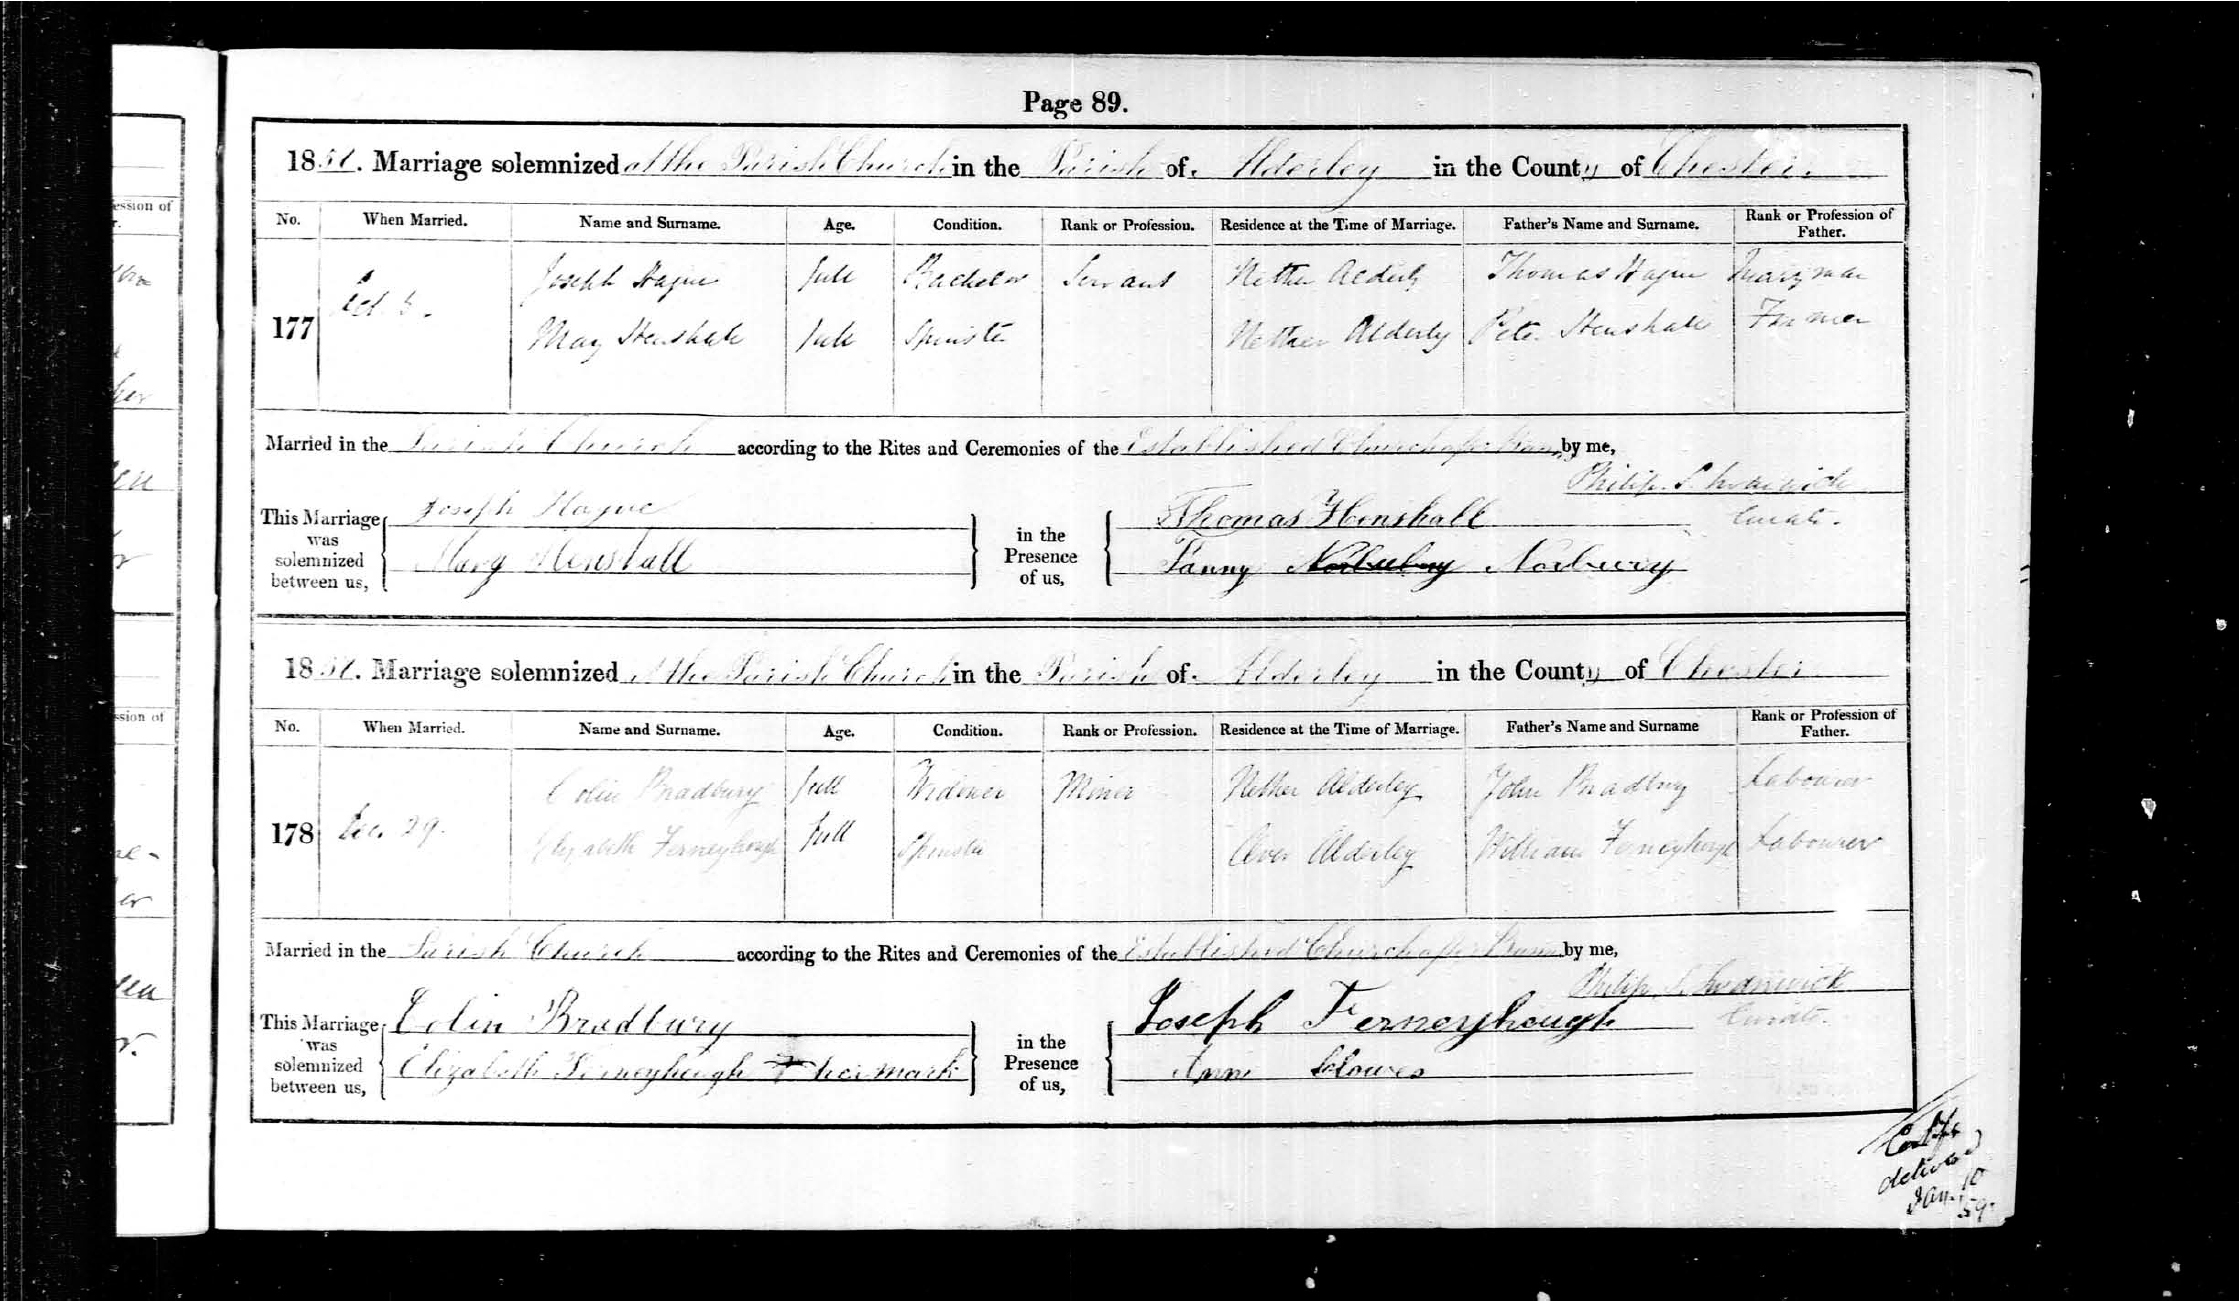 Page 89.
185. Marriage solemnized at the Parish Church in the Parish of Alderley in the County of Chester.
No. When Married. Name and Surname. Age. Condition. Rank or Profession. Residence at the Time of Marriage. Father's Name and Surname. Rank or Profession of Father.
177 5. Joseph Hague full Bachelor Servant Nether Alderly Thomas Hague
Mary Henshall full Spinster Nether Alderly Peter Henshall Farmer
Married in the Parish Church according to the Rites and Ceremonies of the Established Church after Banns by me,
Philip
Curate.
This Marriage was solemnized between us, Joseph Hague in the Presence of us, Thomas Henshall
Mary Henshall Fanny Norbury
185. Marriage solemnized at the Parish Church in the Parish of Alderley in the County of Chester
No. When Married. Name and Surname. Age. Condition. Rank or Profession. Residence at the Time of Marriage. Father's Name and Surname Rank or Profession of Father.
178 Dec. 29. Colin Bradbury full Widower Miner Nether Alderley John Bradbury Labourer
Elizabeth Ferneyhough full Spinster Over Alderley William Ferneyhough Labourer
Married in the Parish Church according to the Rites and Ceremonies of the Established Church after Banns by me,
Philip
Curate.
This Marriage was solemnized between us, Colin Bradbury in the Presence of us, Joseph Ferneyhough
Elizabeth Ferneyhough + her mark Ann Clowes
delivered
Jan. 10
59